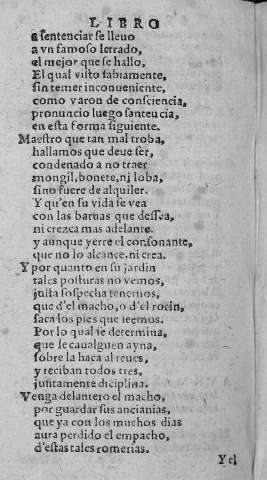 LIBRO
a sentenciar se lleuo
a vn famoso letrado,
el mejor que se hallo,
El qual visto sabiamente,
sin temer inconueniente,
como varon de consciencia,
pronuncio luego sentẽcia,
en esta forma siguiente.
Maestro que tan mal troba,
hallamos que deue ser,
condenado a no traer
mongil, bonete, ni loba,
sino fuere de alquiler.
Y qu'en su vida se vea
con las baruas que dessea,
ni crezca mas adelante.
y aunque yerre el consonante,
que no lo alcance, ni crea.
Y por quanto en su jardin
tales posturas no vemos,
justa sospecha tenemos,
que d'el macho, o d'el rocin,
saca los pies que leemos.
Por lo qual se determina,
que le caualguen ayna,
sobre la haca al reues,
y reciban todos tres,
juntamente diciplina.
Venga delantero el macho,
por guardar sus ancianias,
que ya con los muchos dias
aura perdido el empacho,
d'estas tales romerias.
Y el